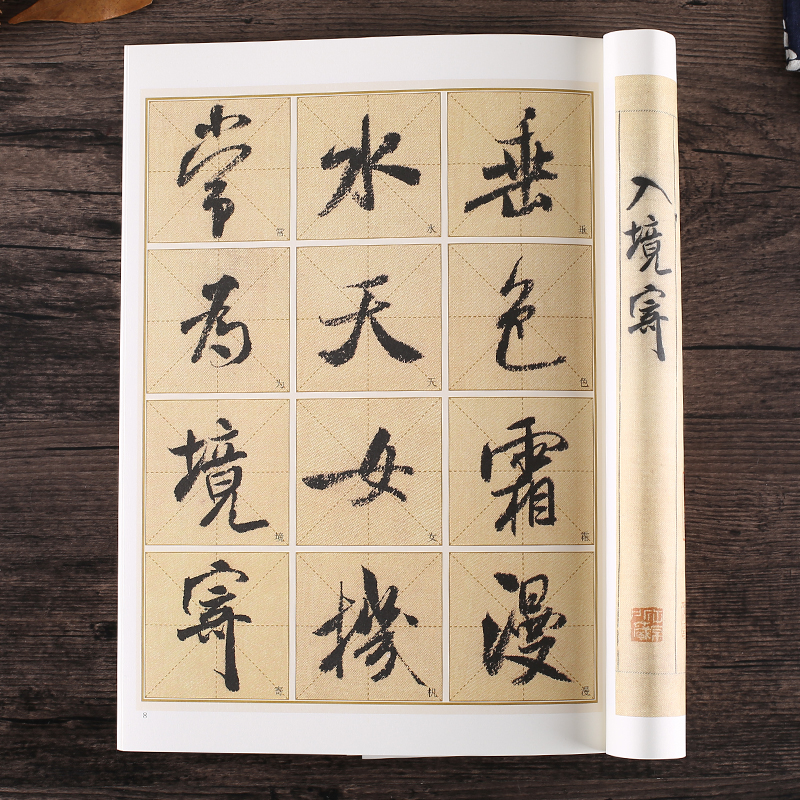 入境寄
垂色霜漫
水天女機
常為境寄
垂
色
霜
漫
水
天
女
机
常
为
境
寄
8